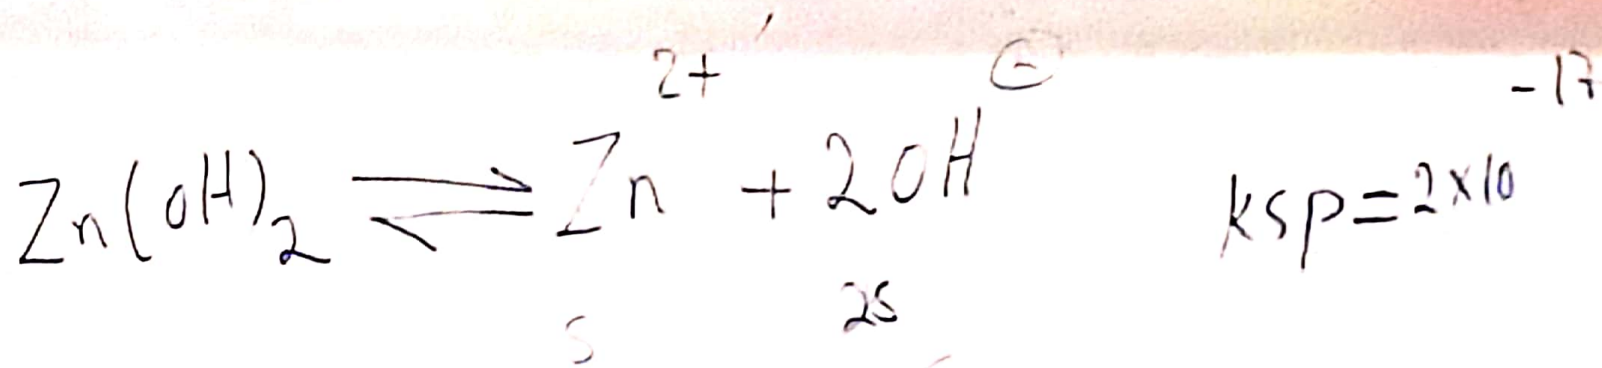 Zn(OH)₂ ⇌ Zn²⁺ + 2OH⁻ ksp = 2×10⁻¹⁷
s 2s